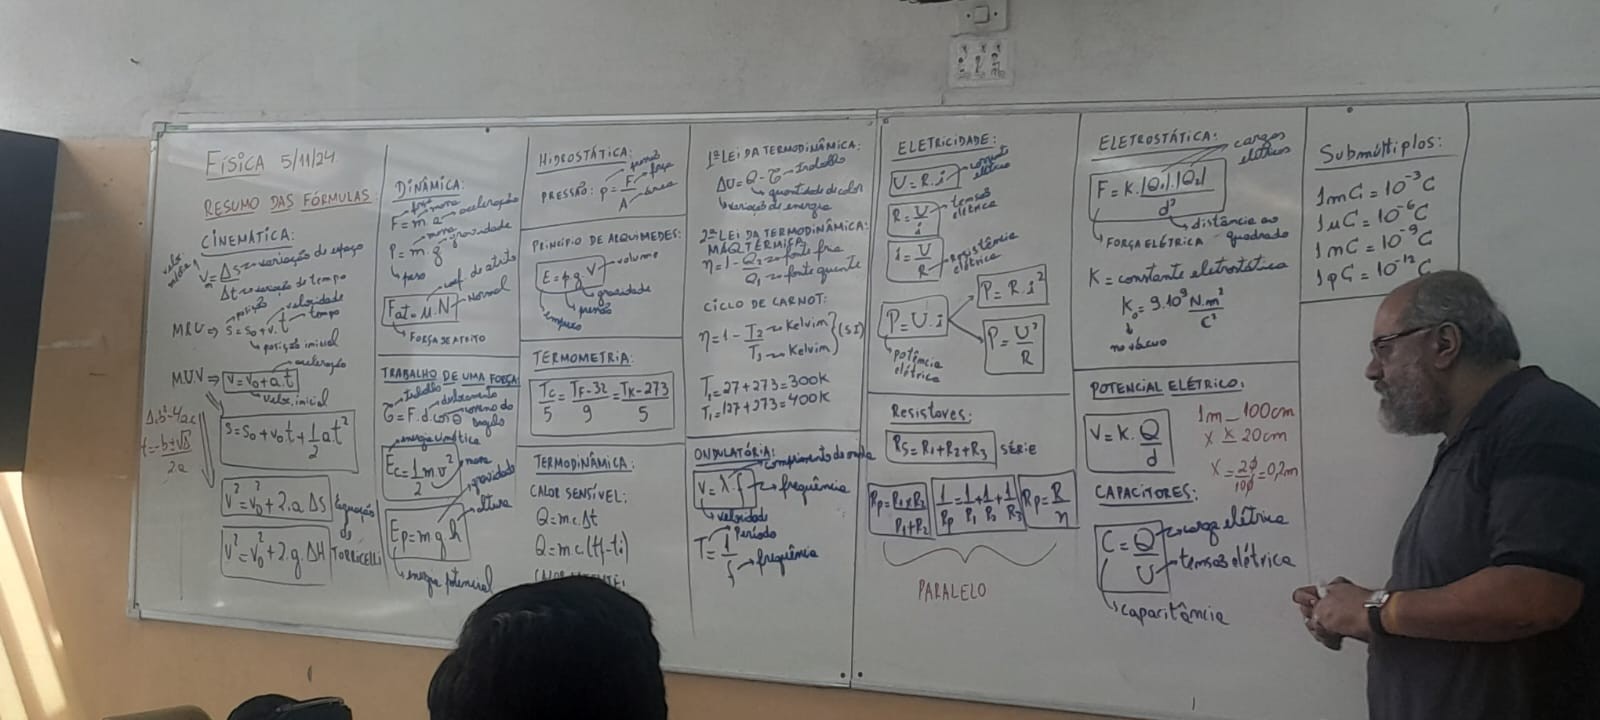 FÍSICA 5/11/24
RESUMO DAS FÓRMULAS
CINEMÁTICA:
V = ΔS → variação de espaço
Δt → variação de tempo
posição velocidade
M.R.U ⇒ S = S₀ + v.t → tempo
posição inicial
aceleração
M.U.V ⇒ V = V₀ + a.t
veloc. inicial
S = S₀ + V₀t + 1/2 at²
2a
V² = V₀² + 2.a ΔS
V² = V₀² + 2.g.ΔH
Equação de TORRICELLI
DINÂMICA:
força massa
F = m.a → aceleração
massa
P = m.g → gravidade
peso
coef. de atrito
Fat = μ.N → Normal
FORÇA DE ATRITO
TRABALHO DE UMA FORÇA:
trabalho deslocamento
τ = F.d.cosθ → cosseno do ângulo
energia cinética
Ec = 1/2 mv²
massa
gravidade
Ep = m g h
altura
energia potencial
HIDROSTÁTICA:
PRESSÃO: p = F/A
força
área
PRINCÍPIO DE ARQUIMEDES:
E = ρ.g.V → volume
gravidade
empuxo
TERMOMETRIA:
Tc/5 = TF-32/9 = TK-273/5
TERMODINÂMICA:
CALOR SENSÍVEL:
Q = m.c.Δt
Q = m.c.(tf-ti)
1ª LEI DA TERMODINÂMICA:
ΔU = Q - τ → trabalho
quantidade de calor
variação de energia
2ª LEI DA TERMODINÂMICA:
MÁQ TÉRMICA
η = 1 - Q₂/Q₁
fonte fria
fonte quente
CICLO DE CARNOT:
η = 1 - T₂/T₁
Kelvim
Kelvim
(SI)
T₂ = 27 + 273 = 300K
T₁ = 127 + 273 = 400K
ONDULATÓRIA:
comprimento de onda
V = λ.f → frequência
velocidade
Período
T = 1/f → frequência
ELETRICIDADE:
U = R.i
corrente elétrica
R = U/i
tensão elétrica
i = U/R
Resistência elétrica
P = U.i
P = R.i²
P = U²/R
potência elétrica
Resistores:
Rs = R₁ + R₂ + R₃ SÉRIE
Rp = R₁xR₂/R₁+R₂
1/Rp = 1/R₁ + 1/R₂ + 1/R₃
Rp = R/n
PARALELO
ELETROSTÁTICA:
cargas elétricas
F = K.|Q₁|.|Q₂|/d²
distância ao quadrado
FORÇA ELÉTRICA
K = constante eletrostática
K₀ = 9.10⁹ N.m²/C²
no vácuo
POTENCIAL ELÉTRICO:
V = K.Q/d
1m _ 100cm
x 20cm
x = 20/100 = 0,2m
CAPACITORES:
C = Q/U
carga elétrica
tensão elétrica
capacitância
Submúltiplos:
1mC = 10⁻³C
1μC = 10⁻⁶C
1nC = 10⁻⁹C
1pC = 10⁻¹²C